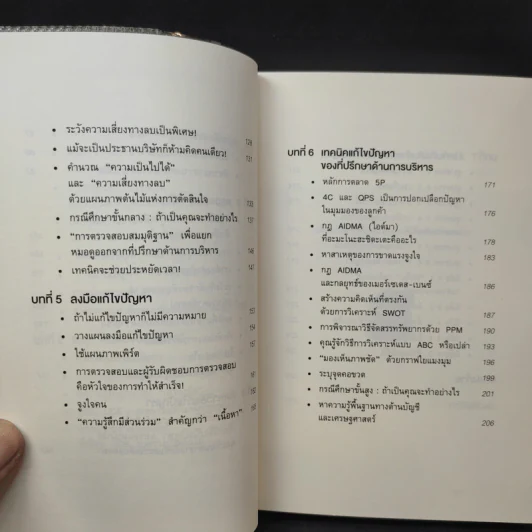 • ระวังความเสี่ยงทางลบเป็นพิเศษ!
• แม้จะเป็นประธานบริษัทก็ห้ามคิดคนเดียว! 131
• คำนวณ “ความเป็นไปได้”
และ “ความเสี่ยงทางลบ”
ด้วยแผนภาพต้นไม้แห่งการตัดสินใจ
• กรณีศึกษาขั้นกลาง : ถ้าเป็นคุณจะทำอย่างไร
• “การตรวจสอบสมมุติฐาน” เพื่อแยก
หมอดูออกจากที่ปรึกษาด้านการบริหาร
• เทคนิคจะช่วยประหยัดเวลา! 147
บทที่ 5 ลงมือแก้ไขปัญหา
• ถ้าไม่แก้ไขปัญหาก็ไม่มีความหมาย
• วางแผนลงมือแก้ไขปัญหา
• ใช้แผนภาพเพิร์ต
• การตรวจสอบและผู้รับผิดชอบการตรวจสอบ
คือหัวใจของการทำให้สำเร็จ!
• จูงใจคน
• “ความรู้สึกมีส่วนร่วม” สำคัญกว่า “เนื้อหา”
บทที่ 6 เทคนิคแก้ไขปัญหา
ของที่ปรึกษาด้านการบริหาร
• หลักการตลาด 5P 171
• 4C และ QPS เป็นการปอกเปลือกปัญหา
ในมุมมองของลูกค้า 176
• กฎ AIDMA (ไอด์มา)
ที่อะมะโนะฮะชิดะเตะคืออะไร 178
• หาสาเหตุของการขาดแรงจูงใจ 183
• กฎ AIDMA
และกลยุทธ์ของเมอร์เซเดส-เบนซ์ 186
• สร้างความคิดเห็นที่ตรงกัน
ด้วยการวิเคราะห์ SWOT 187
• การพิจารณาวิธีจัดสรรทรัพยากรด้วย PPM 190
• คุณรู้จักวิธีการวิเคราะห์แบบ ABC หรือเปล่า 193
• “มองเห็นภาพชัด” ด้วยกราฟใยแมงมุม 196
• ระบุจุดคอขวด 199
• กรณีศึกษาขั้นสูง : ถ้าเป็นคุณจะทำอย่างไร 201
• หาความรู้พื้นฐานทางด้านบัญชี
และเศรษฐศาสตร์ 206